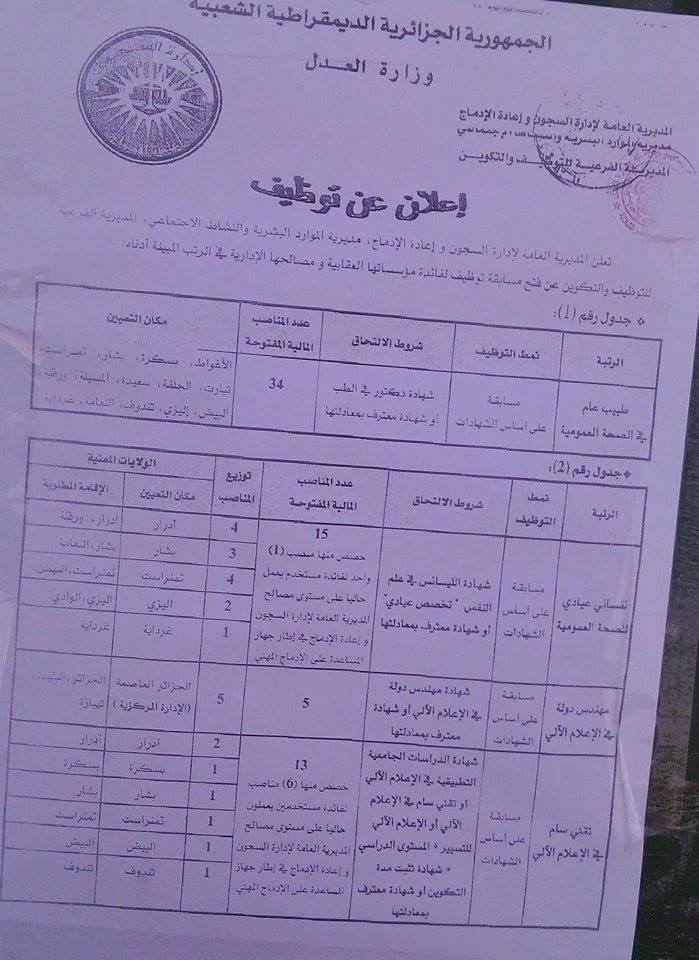 الجمهورية الجزائرية الديمقراطية الشعبية
وزارة العدل
المديرية العامة لإدارة السجون و إعادة الإدماج
مديرية الموارد البشرية
المديرية الفرعية للتوظيف والتكوين
إعلان عن توظيف
تعلن المديرية العامة لإدارة السجون و إعادة الإدماج، مديرية الموارد البشرية والنشاط الاجتماعي، المديرية الفرعية
للتوظيف والتكوين عن فتح مسابقة توظيف لفائدة مؤسساتها العقابية و مصالحها الإدارية في الرتب المبينة أدناه:
جدول رقم (1):
الرتبة نمط التوظيف شروط الالتحاق عدد المناصب المالية المفتوحة مكان التعيين
طبيب عام في الصحة العمومية
مسابقة على أساس الشهادات
شهادة دكتور في الطب أو شهادة معترف بمعادلتها
34
الأغواط، بسكرة، بشار، تمنراست،
تيارت، الجلفة، سعيدة، المسيلة، ورقلة،
البيض، إليزي، تندوف، النعامة، غرداية
جدول رقم (2):
الرتبة نمط التوظيف شروط الالتحاق عدد المناصب المالية المفتوحة توزيع المناصب الولايات المعنية
مكان التعيين الإقامة المطلوبة
نفساني عيادي للصحة العمومية
مسابقة على أساس الشهادات
شهادة الليسانس في علم
النفس " تخصص عيادي"
أو شهادة معترف بمعادلتها
15
خصص منها منصب (1)
واحد لفائدة مستخدم يعمل
حاليا على مستوى مصالح
المديرية العامة لإدارة السجون
و إعادة الإدماج في إطار جهاز
المساعدة على الإدماج المهني
4 أدرار أدرار، ورقلة
3 بشار بشار، النعامة
4 تمنراست تمنراست، البيض
2 اليزي اليزي، الوادي
1 غرداية غرداية
مهندس دولة في الإعلام الآلي
مسابقة على أساس الشهادات
شهادة مهندس دولة
في الإعلام الآلي أو شهادة
معترف بمعادلتها
5
5
الجزائر العاصمة
(الإدارة المركزية)
الجزائر، البليدة،
تيبازة
تقني سام في الإعلام الآلي
مسابقة على أساس الشهادات
شهادة الدراسات الجامعية
التطبيقية في الإعلام الآلي
أو تقني سام في الإعلام
الآلي أو الإعلام الآلي
للتسيير + المستوى الدراسي
+ شهادة تثبت مدة
التكوين أو شهادة معترف
بمعادلتها
13
خصص منها (6) مناصب
لفائدة مستخدمين يعملون
حاليا على مستوى مصالح
المديرية العامة لإدارة السجون
و إعادة الإدماج في إطار جهاز
المساعدة على الإدماج المهني
2 أدرار أدرار
1 بسكرة بسكرة
1 بشار بشار
1 تمنراست تمنراست
1 البيض البيض
1 تندوف تندوف